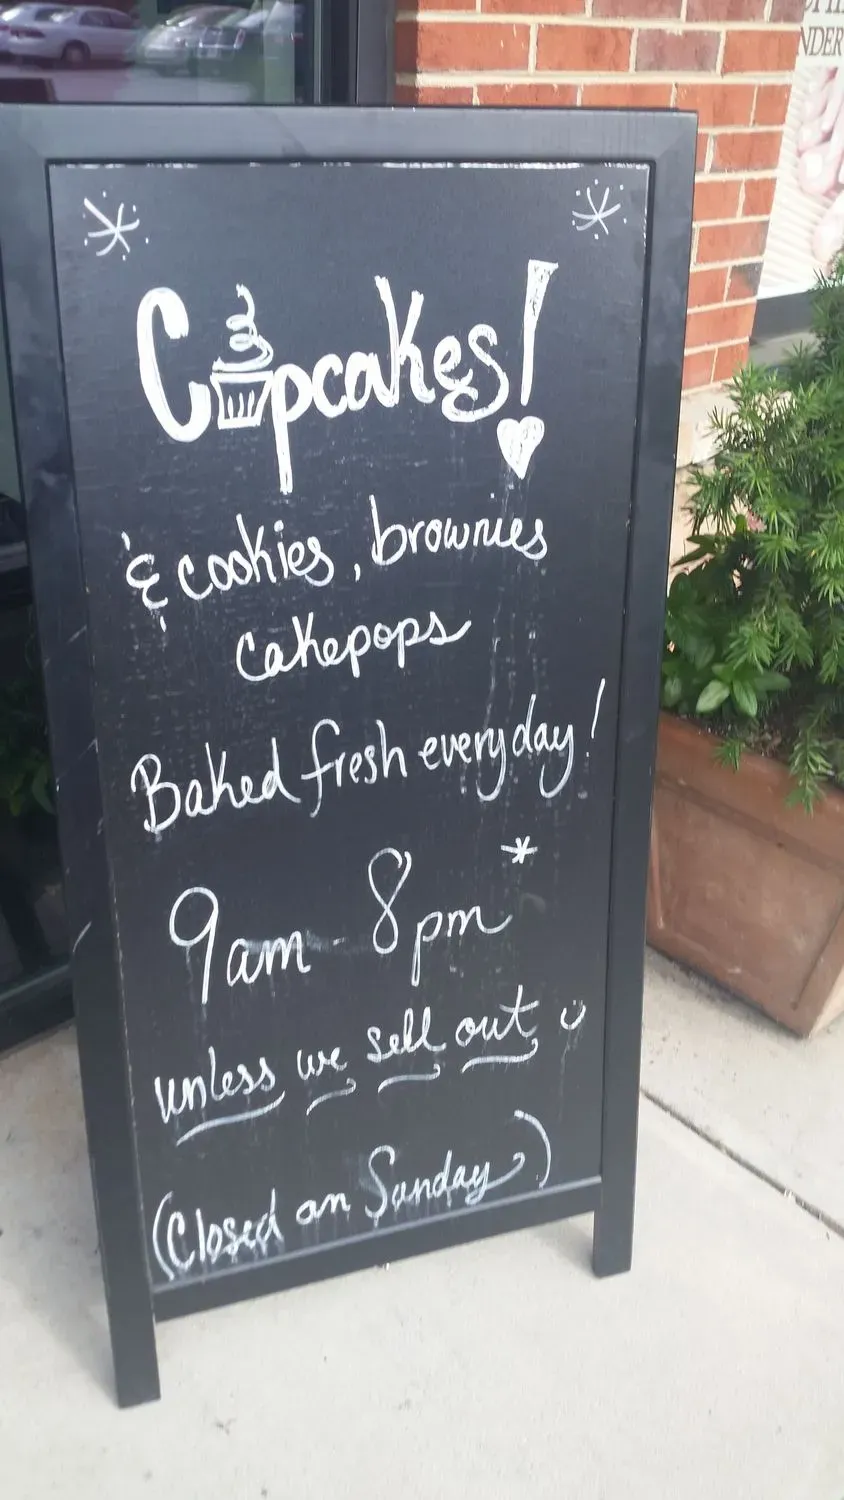 Cupcakes!
& cookies, brownies
cakepops
Baked fresh everyday!
9am - 8pm*
unless we sell out
(Closed on Sunday)